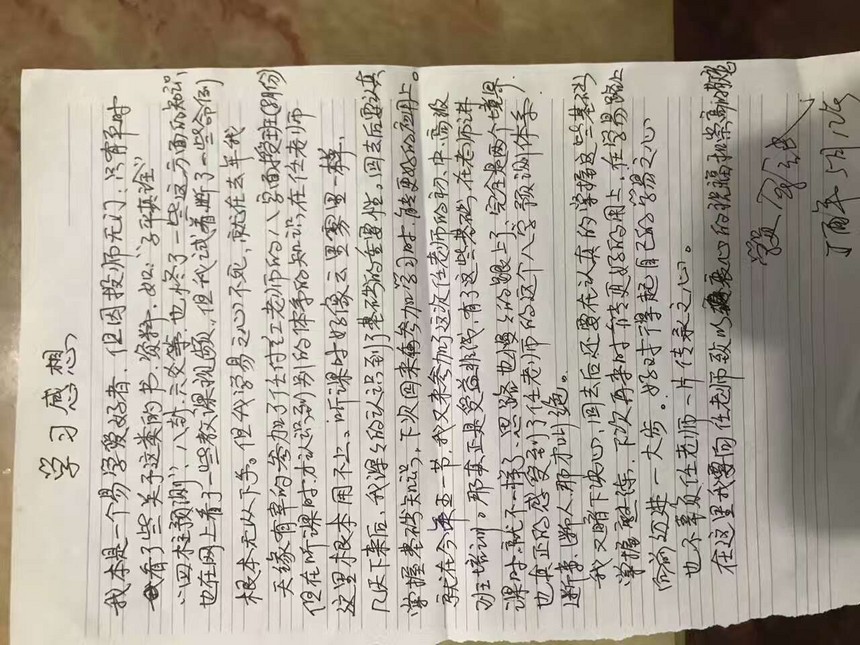 学习感想
我本是一个易学爱好者，但因投师无门，只有平时
看了些关于这类的书、资料，如：“子平真诠”
“四柱预测”、八卦、六爻等，也懂了一些这方面的知识，
也在网上看了一些教课视频，但我试着断了一些命例
根本无从下手。但我学易之心不死，就在去年我
天缘有幸的参加了任付红老师的八字面授班(8月份)
但在听课时，才认识到别的体系的知识，在任老师
这里根本用不上、听课时好像云里雾里一样，
几天下来后，我深深的认识到了基础的重要性。回去后要认真
掌握基础知识，下次回来参加学习时，能更好的应用上。
就在今年五一节，我又来参加了这次任老师的初、中、高级
班培训。那真正是受益非浅，有了这些基础，在老师讲
课时，就不一样了，思路也慢慢的跟上了，完全是两个境界，
也真正的感受到了任老师的这个八字预测体系，
断事、断人那才叫绝。
我又暗下决心，回去后还要在认真的掌握这些基础，
掌握熟练，下次再来时能更好的用上，在学易路上
向前迈进一大步。好对得起自己的学易之心
也不辜负任老师一片传承之心。
在这里我要向任老师致以衷心的祝福和崇高的敬意
学员
丁酉年5月1